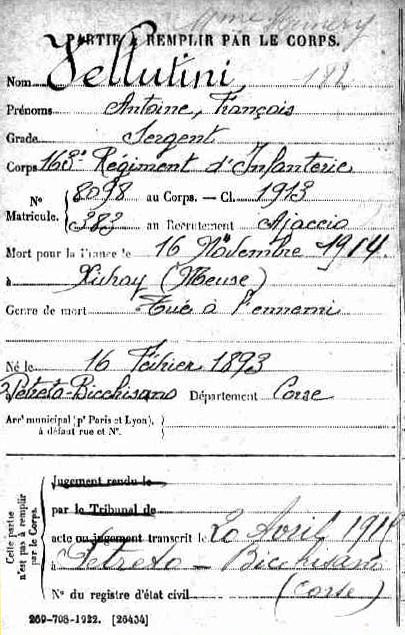 PARTIE À REMPLIR PAR LE CORPS.
Nom Vellutini
Prénoms Antoine, François
Grade Sergent
Corps 163e Régiment d'Infanterie
N° Matricule. { 8098 au Corps. — Cl. 1913
383 au Recrutement Ajaccio
Mort pour la France le 16 Novembre 1914
à Xivray (Meuse)
Genre de mort Tué à l'ennemi
Né le 16 Février 1893
à Petreto-Bicchisano Département Corse
Arrt municipal (pr Paris et Lyon),
à défaut rue et N°.
Cette partie n'est pas à remplir par le Corps.
Jugement rendu le
par le Tribunal de
acte ou jugement transcrit le 20 Avril
à Petreto-Bicchisano
(Corse)
N° du registre d'état civil
269-708-1922. [26434]